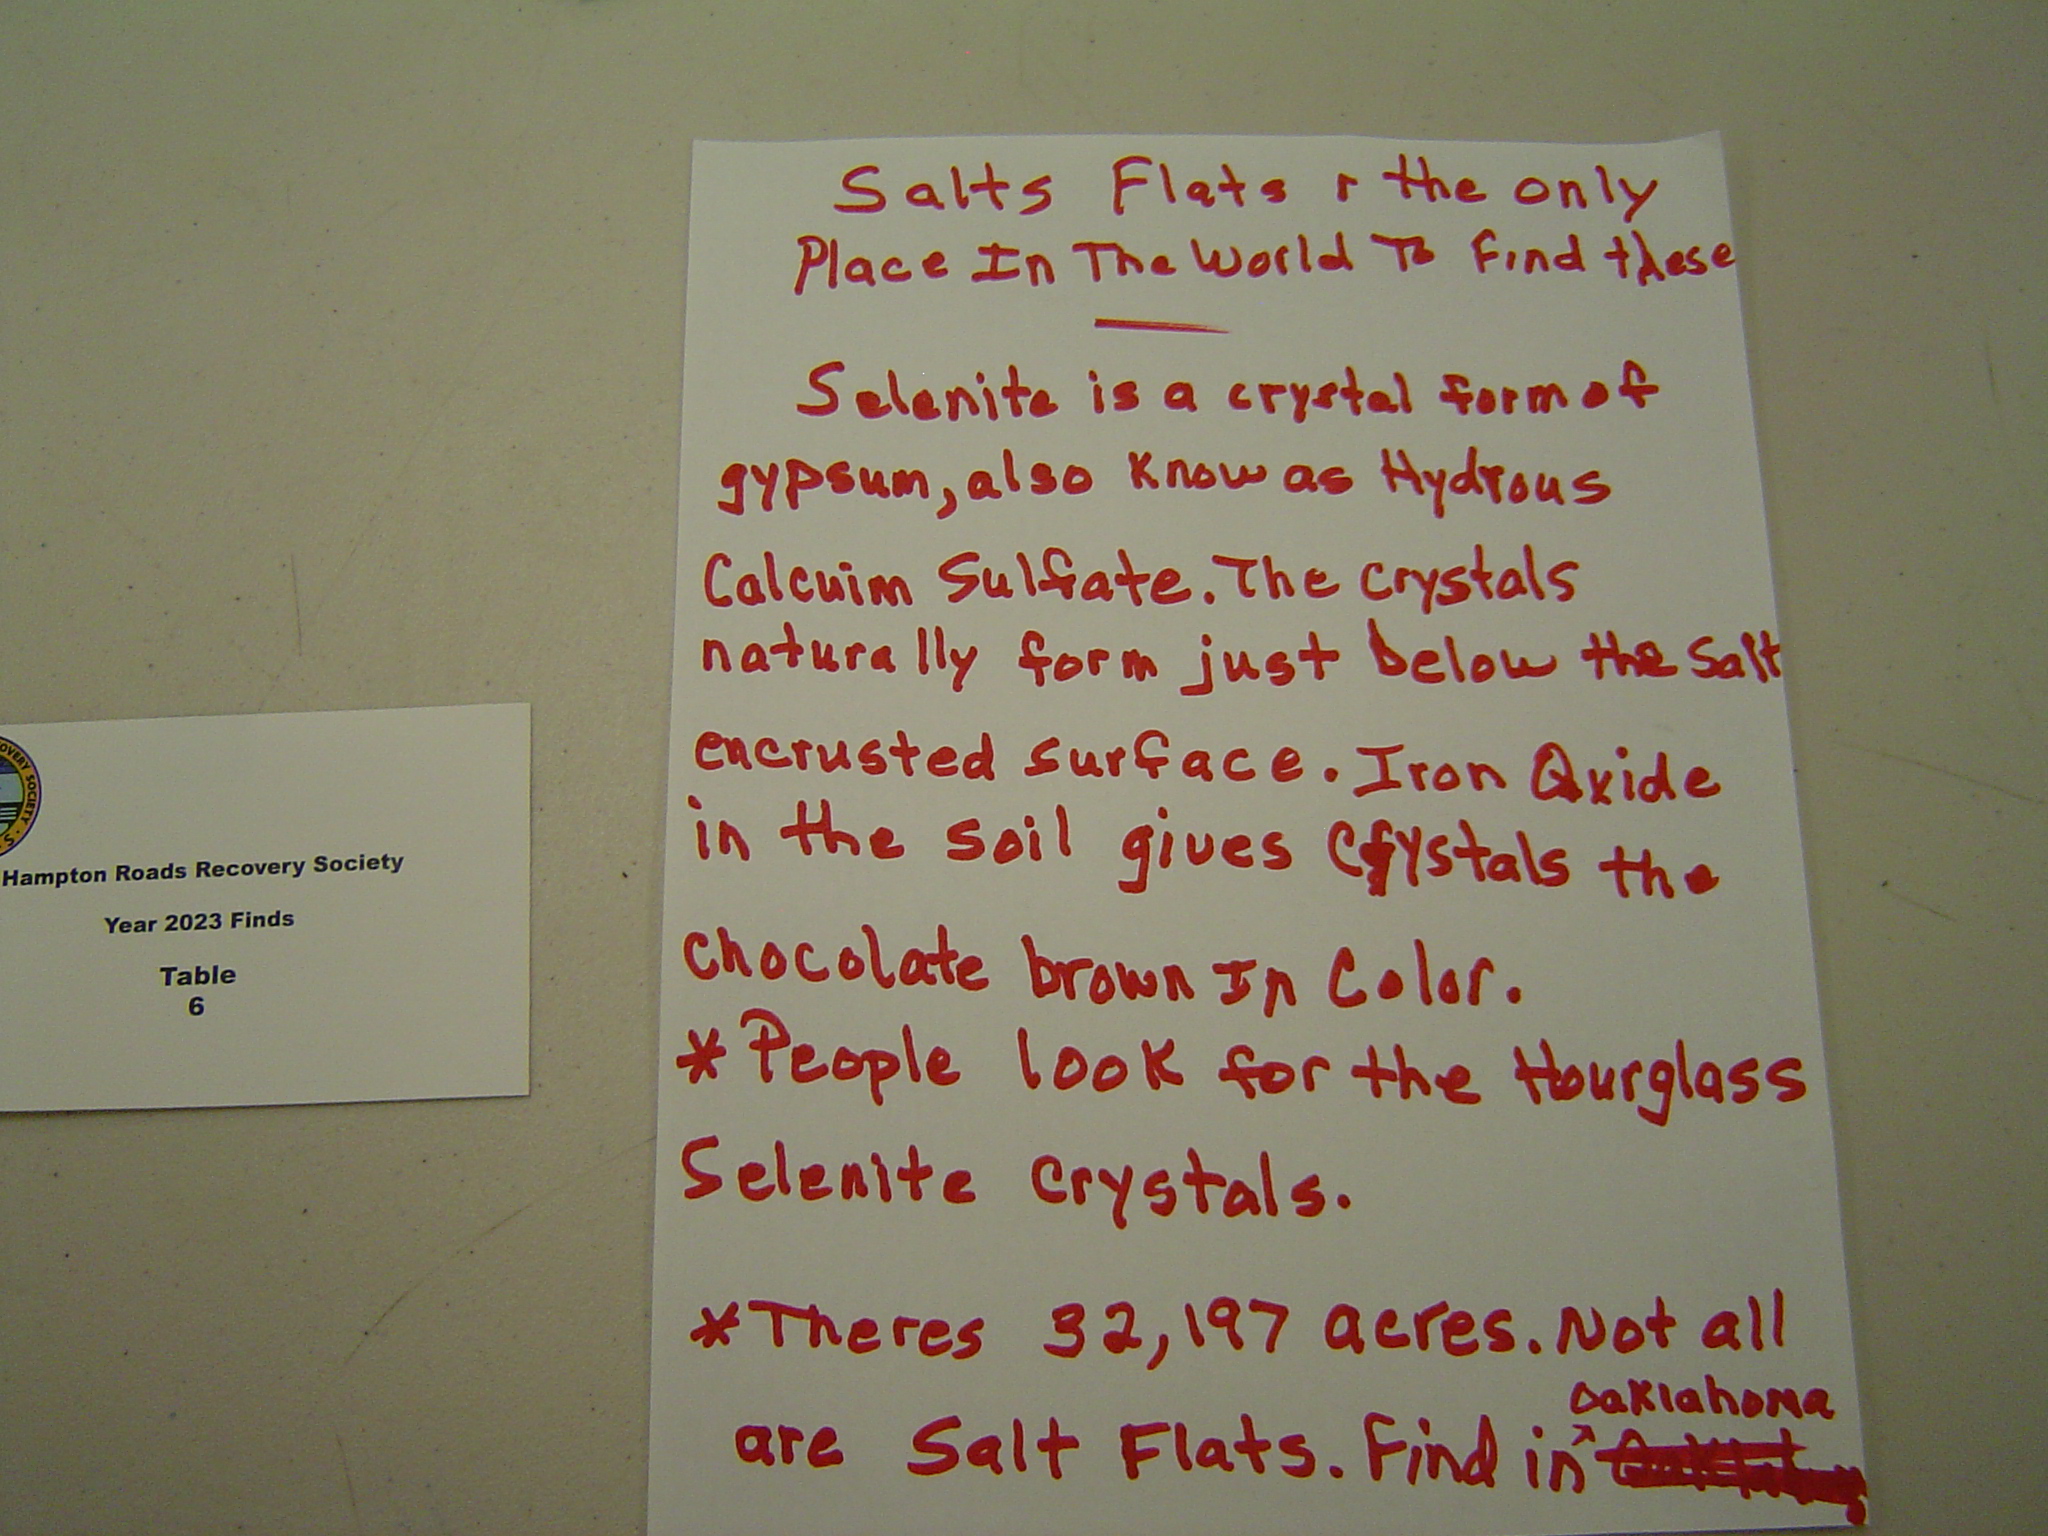 Salts Flats r the only
Place In The World To find these
Selenite is a crystal form of
gypsum, also Know as Hydrous
Calcuim Sulfate. The crystals
naturally form just below the Salt
encrusted surface. Iron Oxide
in the soil gives Crystals the
chocolate brown In Color.
* People look for the Hourglass
Selenite crystals.
* Theres 32,197 acres. Not all
Oaklahoma
are Salt Flats. Find in
OVERY SOCIETY
Hampton Roads Recovery Society
Year 2023 Finds
Table
6